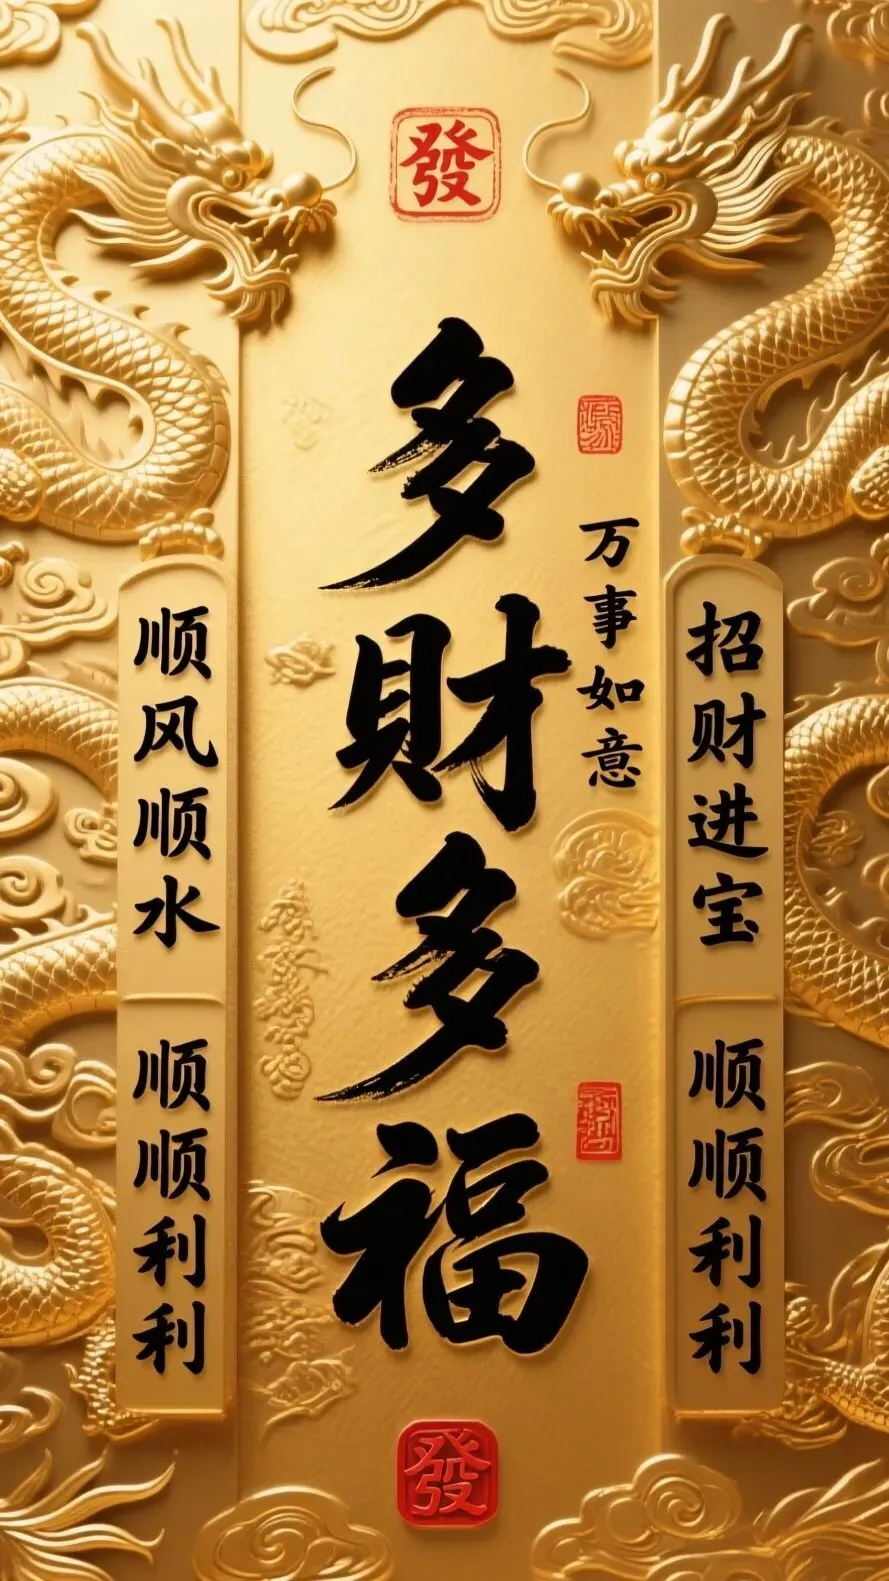 發
多財多福
万事如意
招财进宝
顺顺利利
顺风顺水
顺顺利利
發